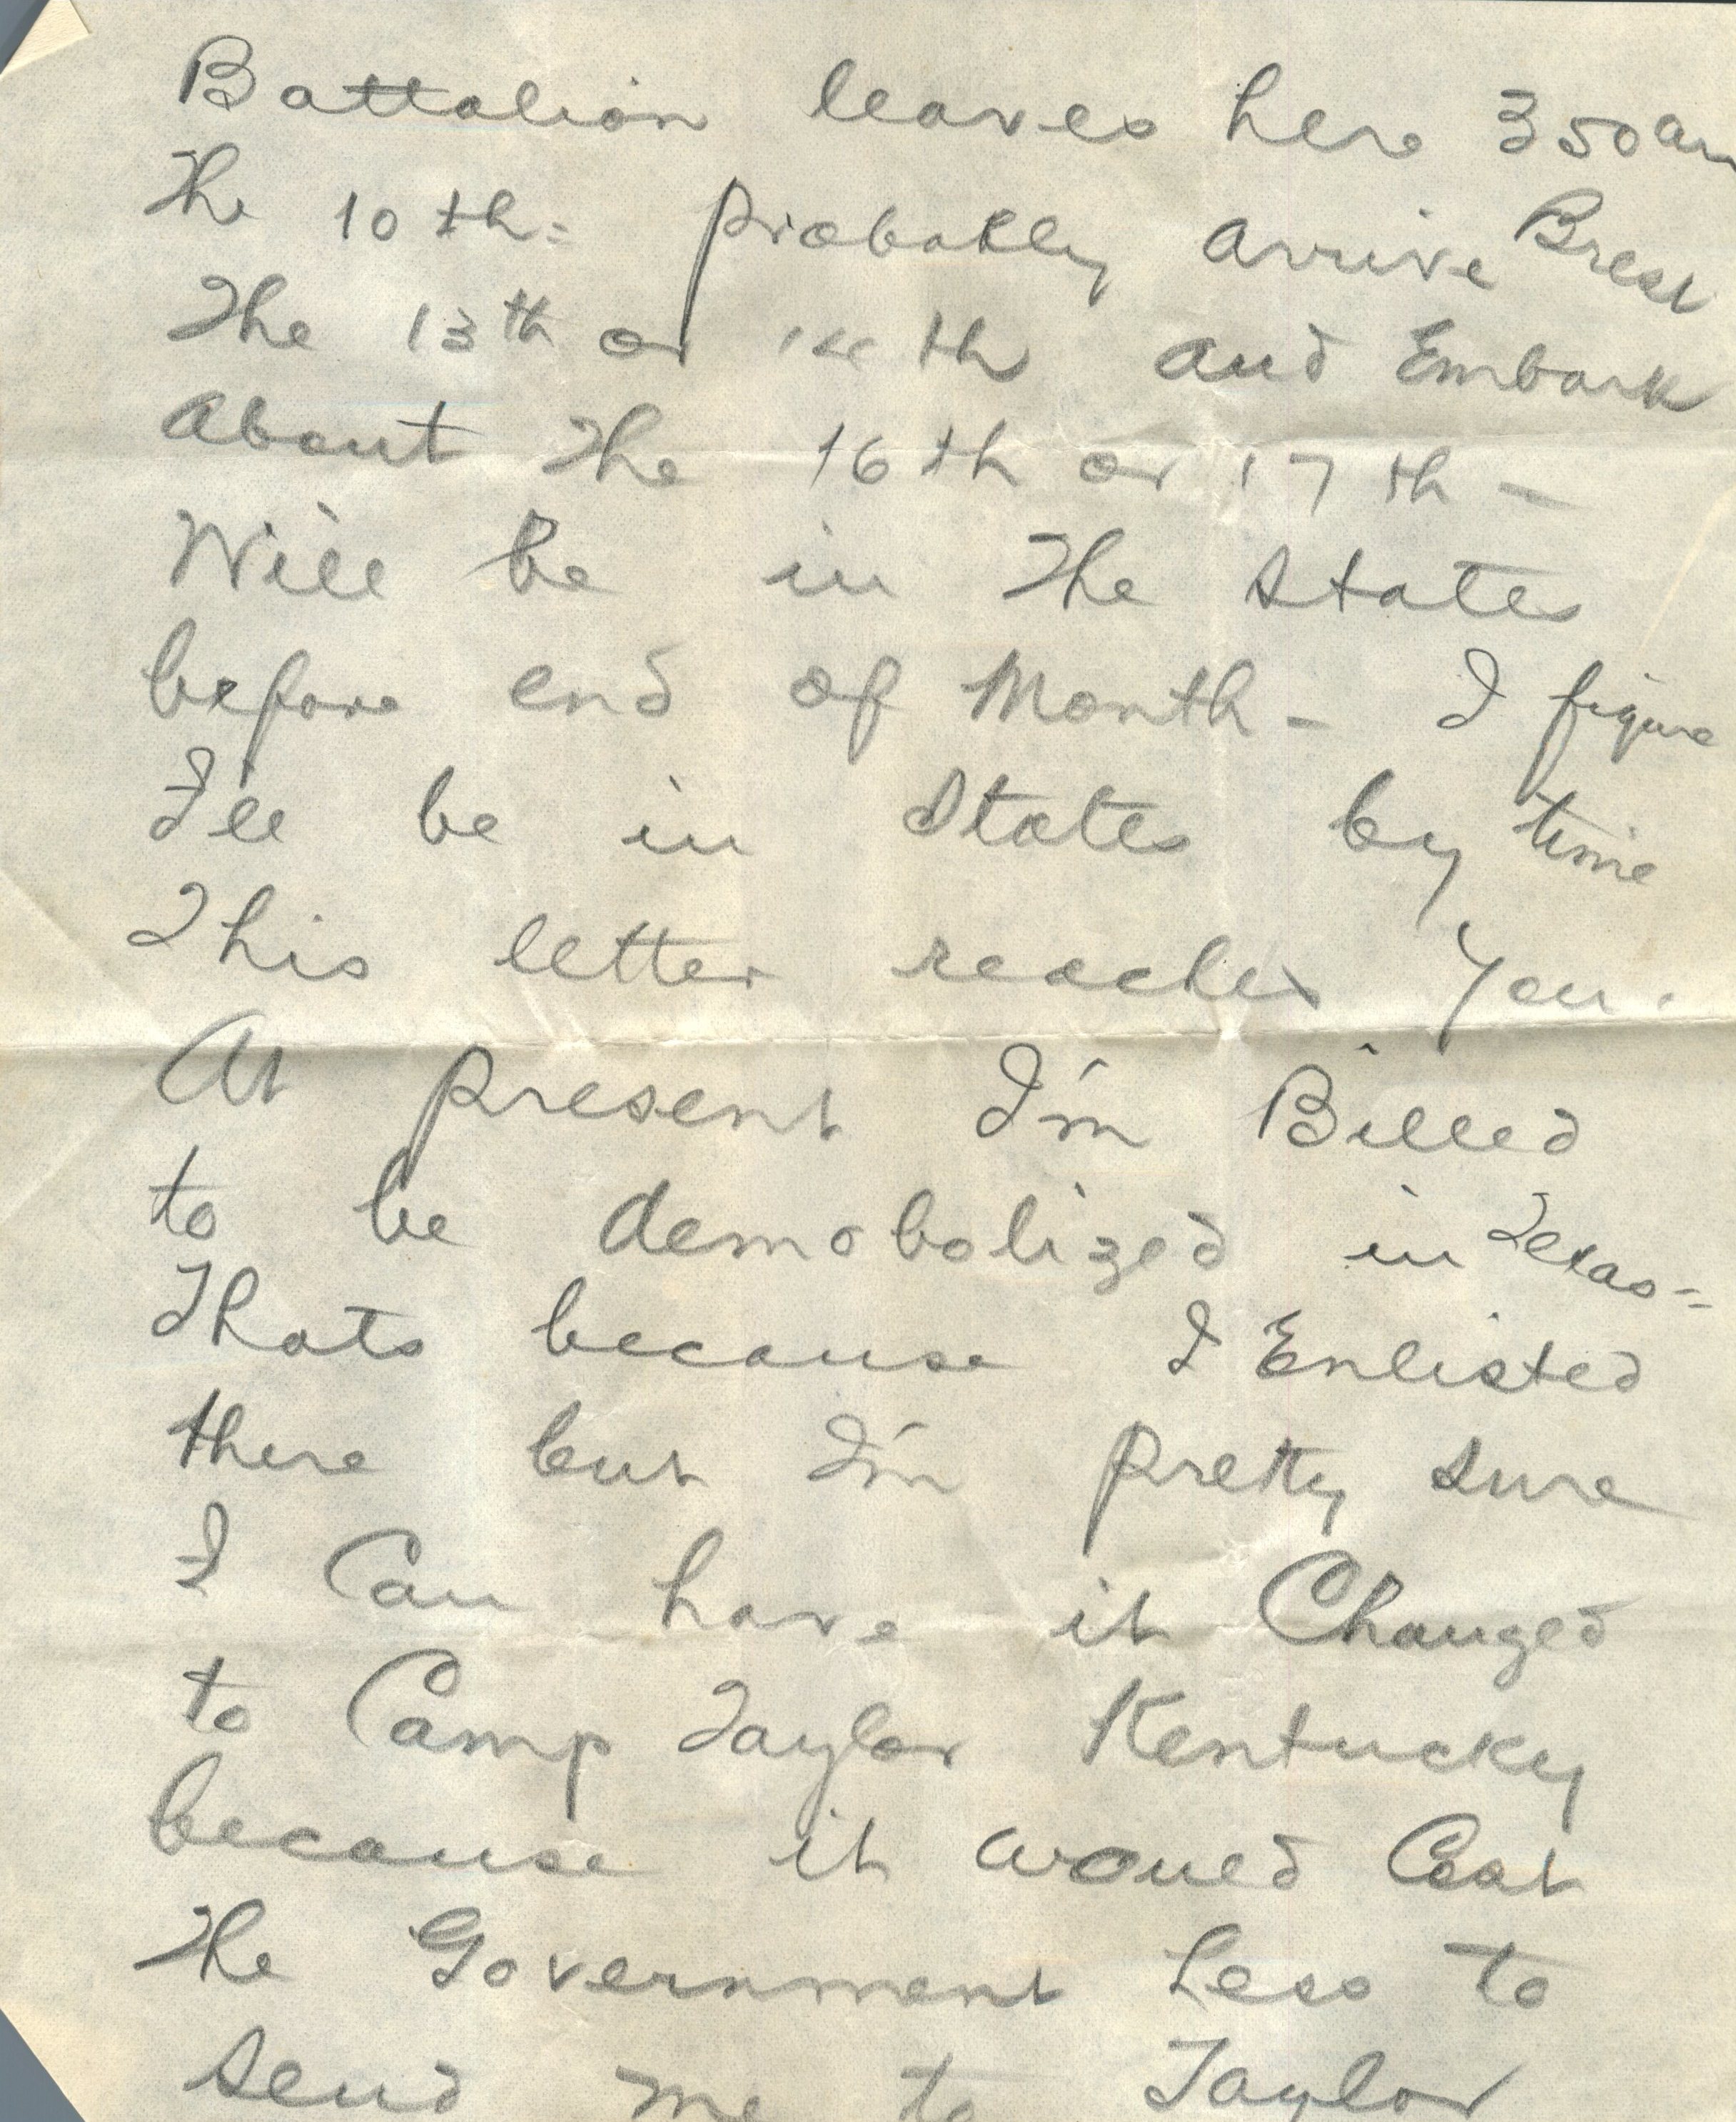 Battalion leaves here 350 am
The 10th = probably arrive Brest
The 13th or 14th and Embark
About The 16th or 17th -
Will be in The States
before end of Month - I figure
I'll be in States by time
This letter reaches You.
At present I'm Billed
to be demobolized in Texas =
Thats because I Enlisted
there but I'm pretty sure
I Can have it Changed
to Camp Taylor Kentucky
because it would Cost
The Government Less to
send me to Taylor